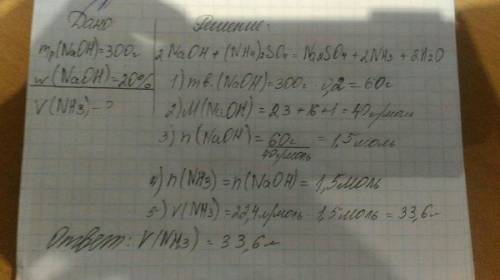 Дано
Решение:
mр(NaOH)=300г
w(NaOH)=20%
V(NH3)-?
2NaOH + (NH4)2SO4 = Na2SO4 + 2NH3 + 2H2O
1) mв.(NaOH)=300г · 0,2 = 60г
2) M(NaOH) = 23 + 16 + 1 = 40г/моль
3) n(NaOH) = 60г / 40г/моль = 1,5 моль
4) n(NH3) = n(NaOH) = 1,5 моль
5) V(NH3) = 22,4 л/моль · 1,5 моль = 33,6 л
Ответ: V(NH3) = 33,6 л